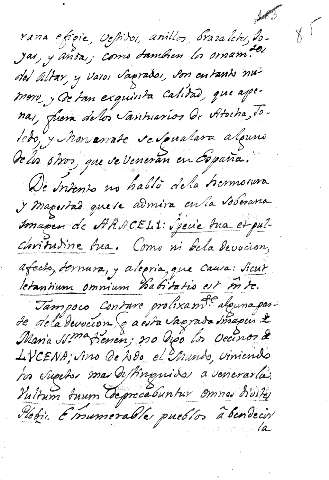 85
rana efigie, vestidos, anillos, brazaletes, jo-
yas, y Anta; como tambien los ornam.tos
del Altar, y vasos sagrados, son en tanto nu-
mero, y de tan exquisita calidad, que ape-
nas, fuera de los Santuarios de Atocha, To-
ledo, y Monserrate se igualara alguno
de los otros, que se veneran en España.
De intento no hablo de la hermosura
y magestad que se admira en la Soberana
Imagen de ARACELI: Specie tua et pul-
chritudine tua. Como ni de la devocion,
afecto, ternura, y alegria, que causa: Sicut
letantium omnium habitatio est in te.
Tampoco contare prolixam.te alguna par-
te de la devocion, q a esta Sagrada Imagen de
Maria SS.ma tienen; no digo los vecinos de
LUCENA; sino de todo el Mundo, viniendo
los sugetos mas distinguidos a venerarla:
Vultum tuum deprecabuntur omnes divites
Plebis. E innumerables pueblos à bendecir
la